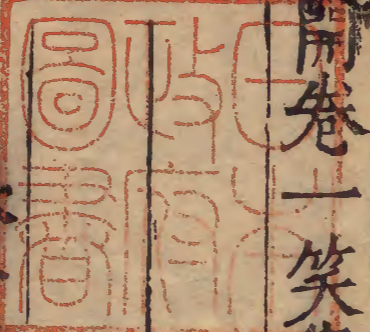 開卷一笑
日本
政府
圖書